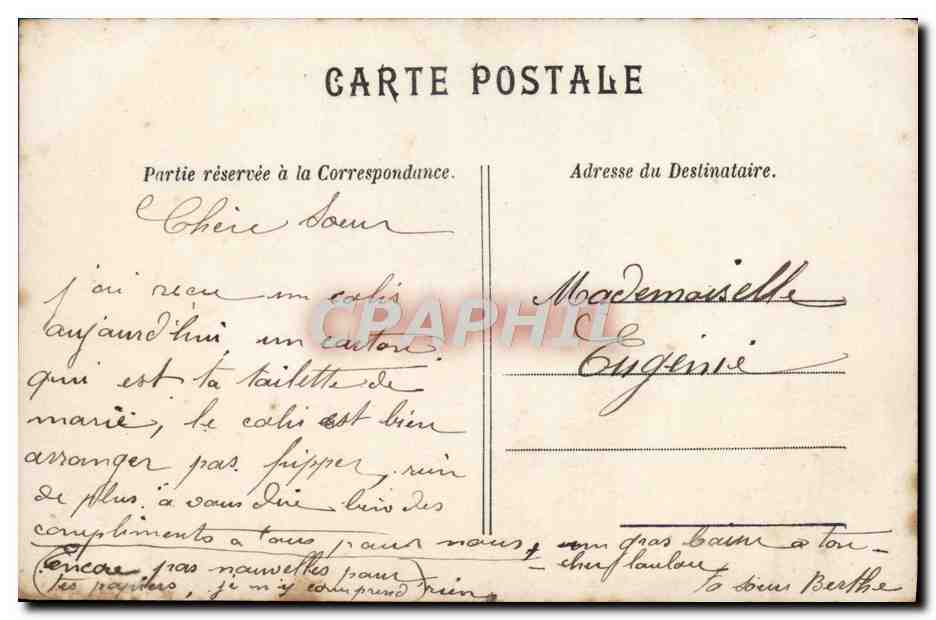 CARTE POSTALE
Partie réservée à la Correspondance.
Adresse du Destinataire.
Chère Soeur
j'ai reçu un colis
aujourd'hui, un carton
qui est ta tailette de
marië, le colis est bien
arranger pas fripper, rien
de plus à vous dire bien des
compliments a tous pour nous, + un gros baiser a ton
cher loulou
(encore pas nouvelles pour
tes papiers, je m'y comprend rien)
ta soeur Berthe
Mademoiselle
Eugénie
CPAPHIL